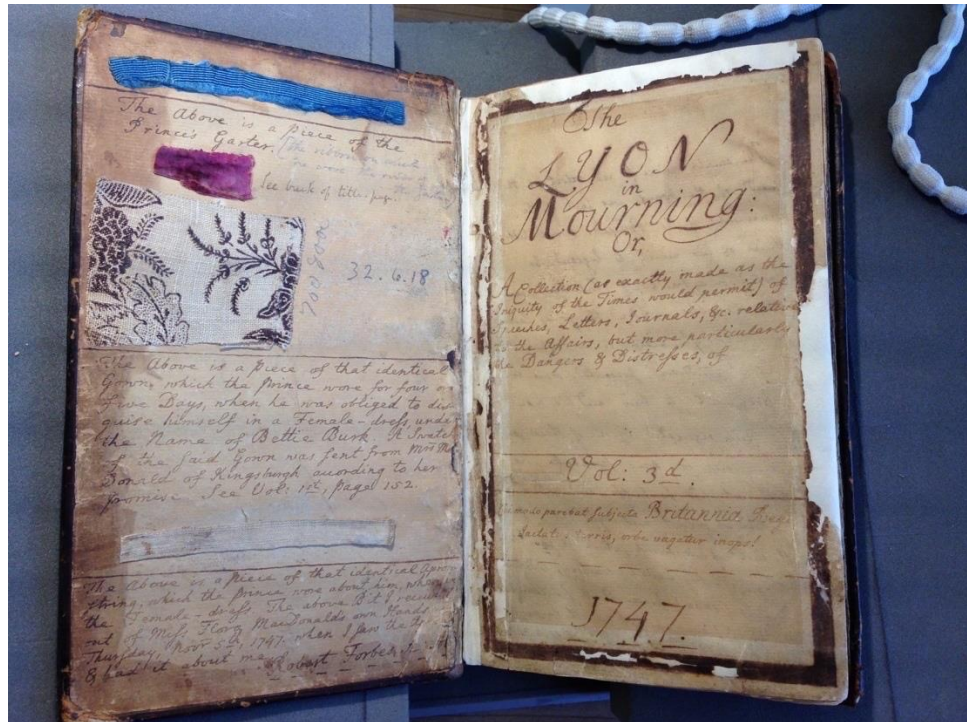 The Above is a piece of the
Prince's Garter.
See back of title-page.
32.6.18
The Above is a piece of that identical
Gown, which the Prince wore for four or
five Days, when he was obliged to dis-
guise himself in a Female-dress, under
the Name of Bettie Burk. A Swatch
of the said Gown was sent from Mrs Mac
Donald of Kingsburgh according to her
promise. See Vol: 1st, page 152.
The Above is a piece of that identical Apron
string, which the Prince wore about him, when in
the Female-dress. The above Bit I received
out of Miss Flora MacDonald's own Hands
Thursday, Novr 5th, 1747, when I saw the
& had it about me.
Robert Forbes
The
LYON
in
Mourning:
Or,
A Collection (as exactly made as the
Iniquity of the Times would permit) of
Speeches, Letters, Journals, &c. relative
to the Affairs, but more particularly
the Dangers & Distresses, of
Vol: 3d.
parent subjecta Britannia Regi
Jactatur terris, orbe vagatur inops!
1747.